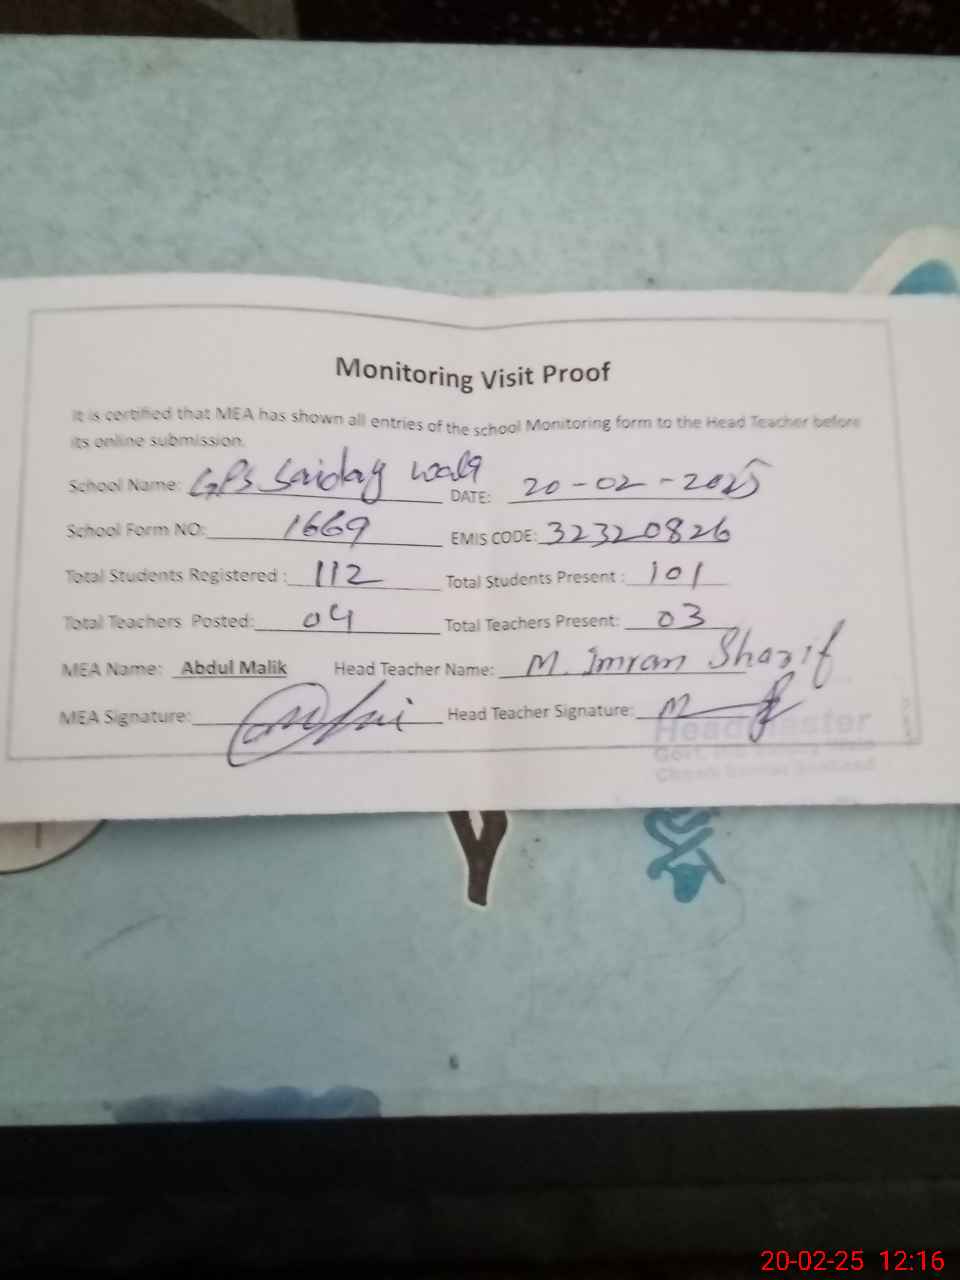 Monitoring Visit Proof
It is certified that MEA has shown all entries of the school Monitoring form to the Head Teacher before
its online submission.
School Name: GPS Saiday wala DATE: 20-02-2025
School Form NO: 1669 EMIS CODE: 32320826
Total Students Registered : 112 Total Students Present : 101
Total Teachers Posted: 04 Total Teachers Present: 03
MEA Name: Abdul Malik Head Teacher Name: M. Imran Sharif
MEA Signature: Head Teacher Signature:
Head Master
20-02-25 12:16